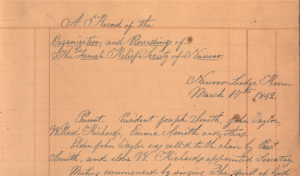 A Record of the
Organization, and Proceedings of
The Female Relief Society of Nauvoo
Nauvoo Lodge Room
March 17th 1842.
Present. President Joseph Smith, John Taylor,
Willard Richards, Emma Smith and others
Elder John Taylor was call'd to the chair by Prest
Smith, and Elder W. Richards appointed Secretary
Meeting commenced by singing The Spirit of God